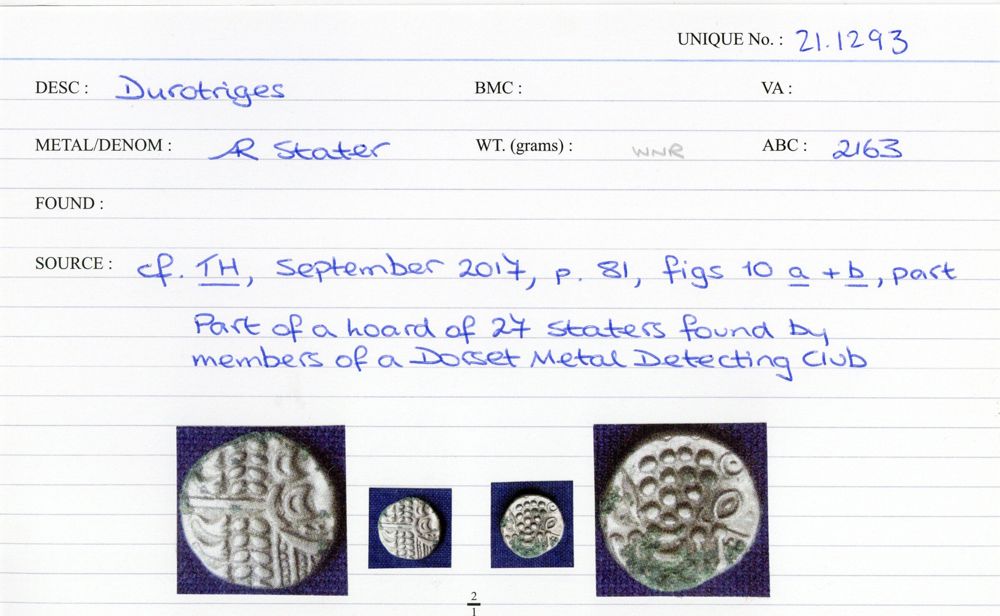 UNIQUE No. : 21.1293
DESC : Durotriges BMC : VA :
METAL/DENOM : AR Stater WT. (grams) : WNR ABC : 2163
FOUND :
SOURCE : cf. TH, September 2017, p. 81, figs 10 a + b, part
Part of a hoard of 27 staters found by
members of a Dorset Metal Detecting Club
2
1